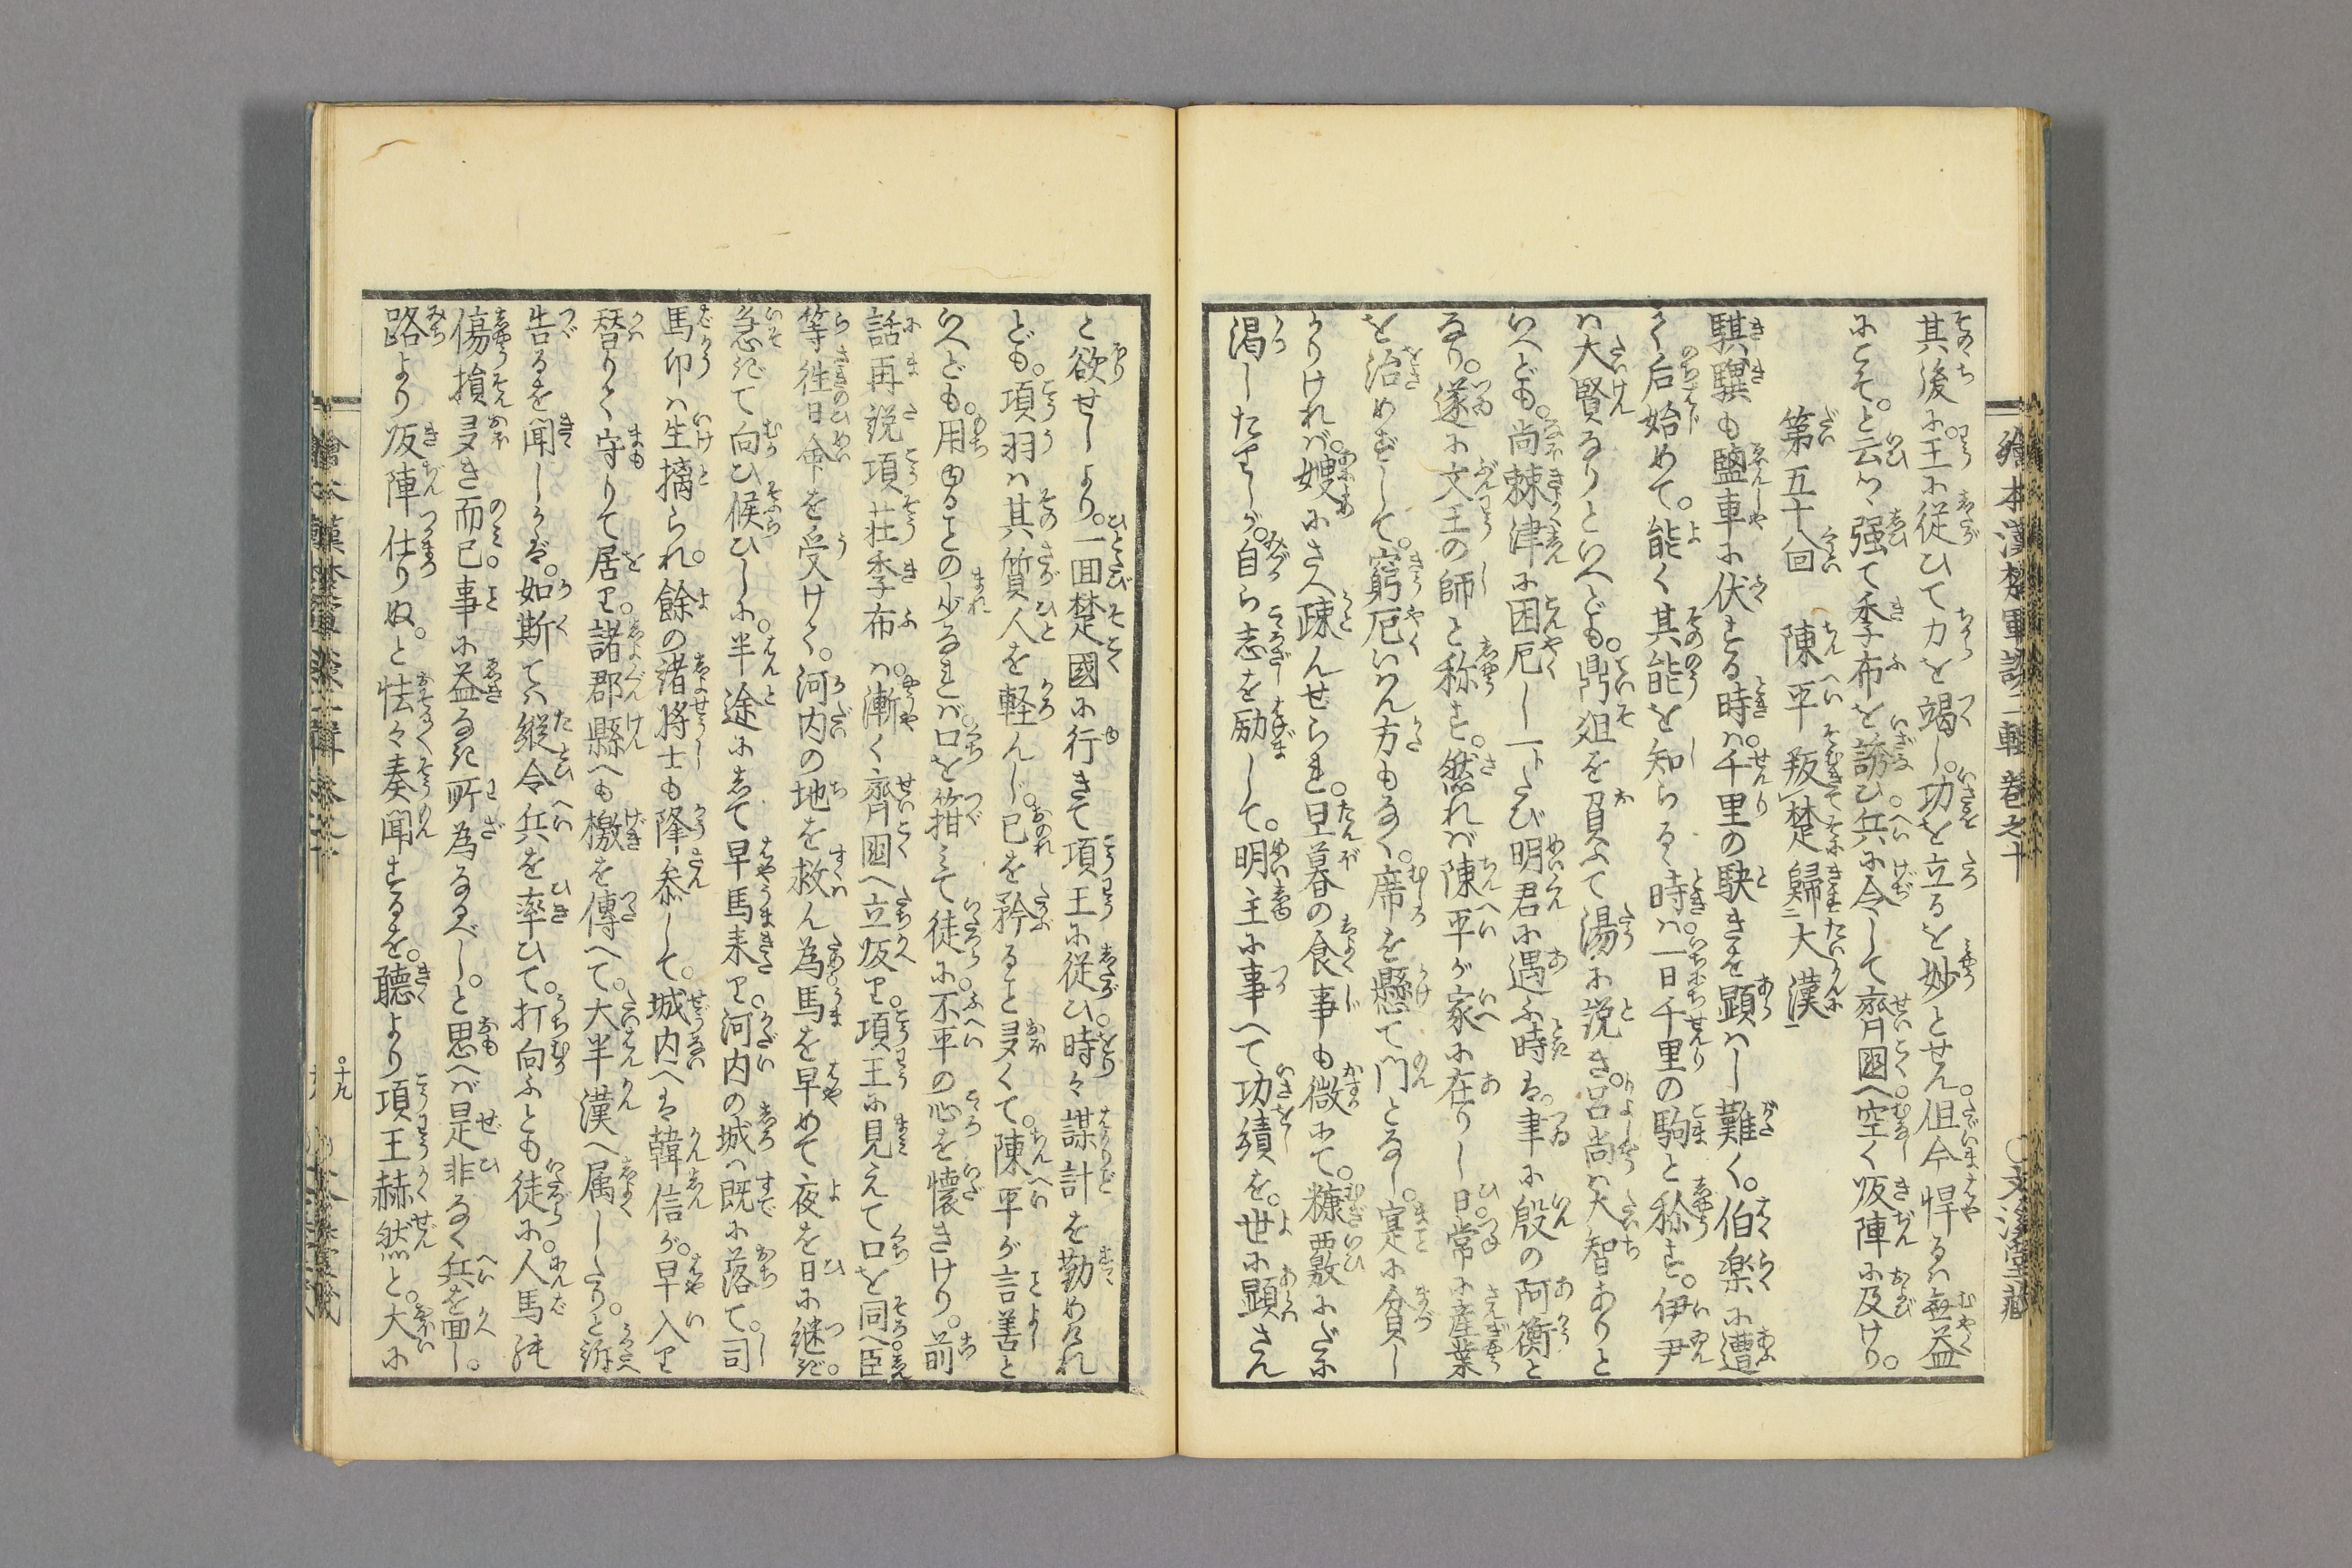 繪本漢楚軍談二輯巻之十 〇文溪堂藏
其後に王に従ひて力を竭し。功を立るを妙とせん。但今悍るは無益
にこそ。と云つゝ強て季布を誘ひ。兵に令して齊國へ空く。皈陣に及けり。
第五十回 陳平叛楚歸大漢
騏驥も鹽車に伏する時は。千里の駛きを顕はし難く。伯楽に遭
て后始めて。能く其能を知らる。時は。一日千里の駒と称す。伊尹
は大賢なりといへども。鼎俎を負ふて湯に説き。呂尚は大智ありと
いへども。尚棘津に困厄し一トたび明君に遇ふ時は。聿に殷の阿衡と
なり。遂に文王の師と称す。然れば陳平が家に在りし日。常に産業
を治めずして。窮厄いはん方もなく。席を懸て門となし。寔に貧し
かりければ。嫂にさへ疎んせられ。旦暮の食事も微にて。糠覈にだに
渇したりしが。自ら志を励して。明主に事へて功績を。世に顕さん
と欲せしより。一回楚國に行きて項王に従ひ。時々謀計を勤めたれ
ども。項羽は其質人を軽んじ。己を矜ること多くて。陳平が言善と
いへども。用ゆることの少なれば。口を箝みて徒に。不平の心を懐きけり。前
話再説項荘季布は。漸く齊國へ立皈り。項王に見えて口を同へ臣
等往日命を受けて。河内の地を救ん為馬を早めて夜を日に継ぎ。
急ぎて向ひ候ひしに。半途にして早馬来り。河内の城は既に落て。司
馬卬は生擒られ。餘の諸将士も降参して。城内へは韓信が。早入り
替りて守りて居り。諸郡縣へも檄を傳へて。大半漢へ属したり。と訴
告るを聞しかば。如斯ては縦令兵を率ひて。打向ふとも徒に。人馬
傷損多き而已。事に益なき所為なるべし。と思へば是非なく兵を回し。
路より皈陣仕りぬ。と怯々奏聞するを。聴より項王赫然と。大に
十九